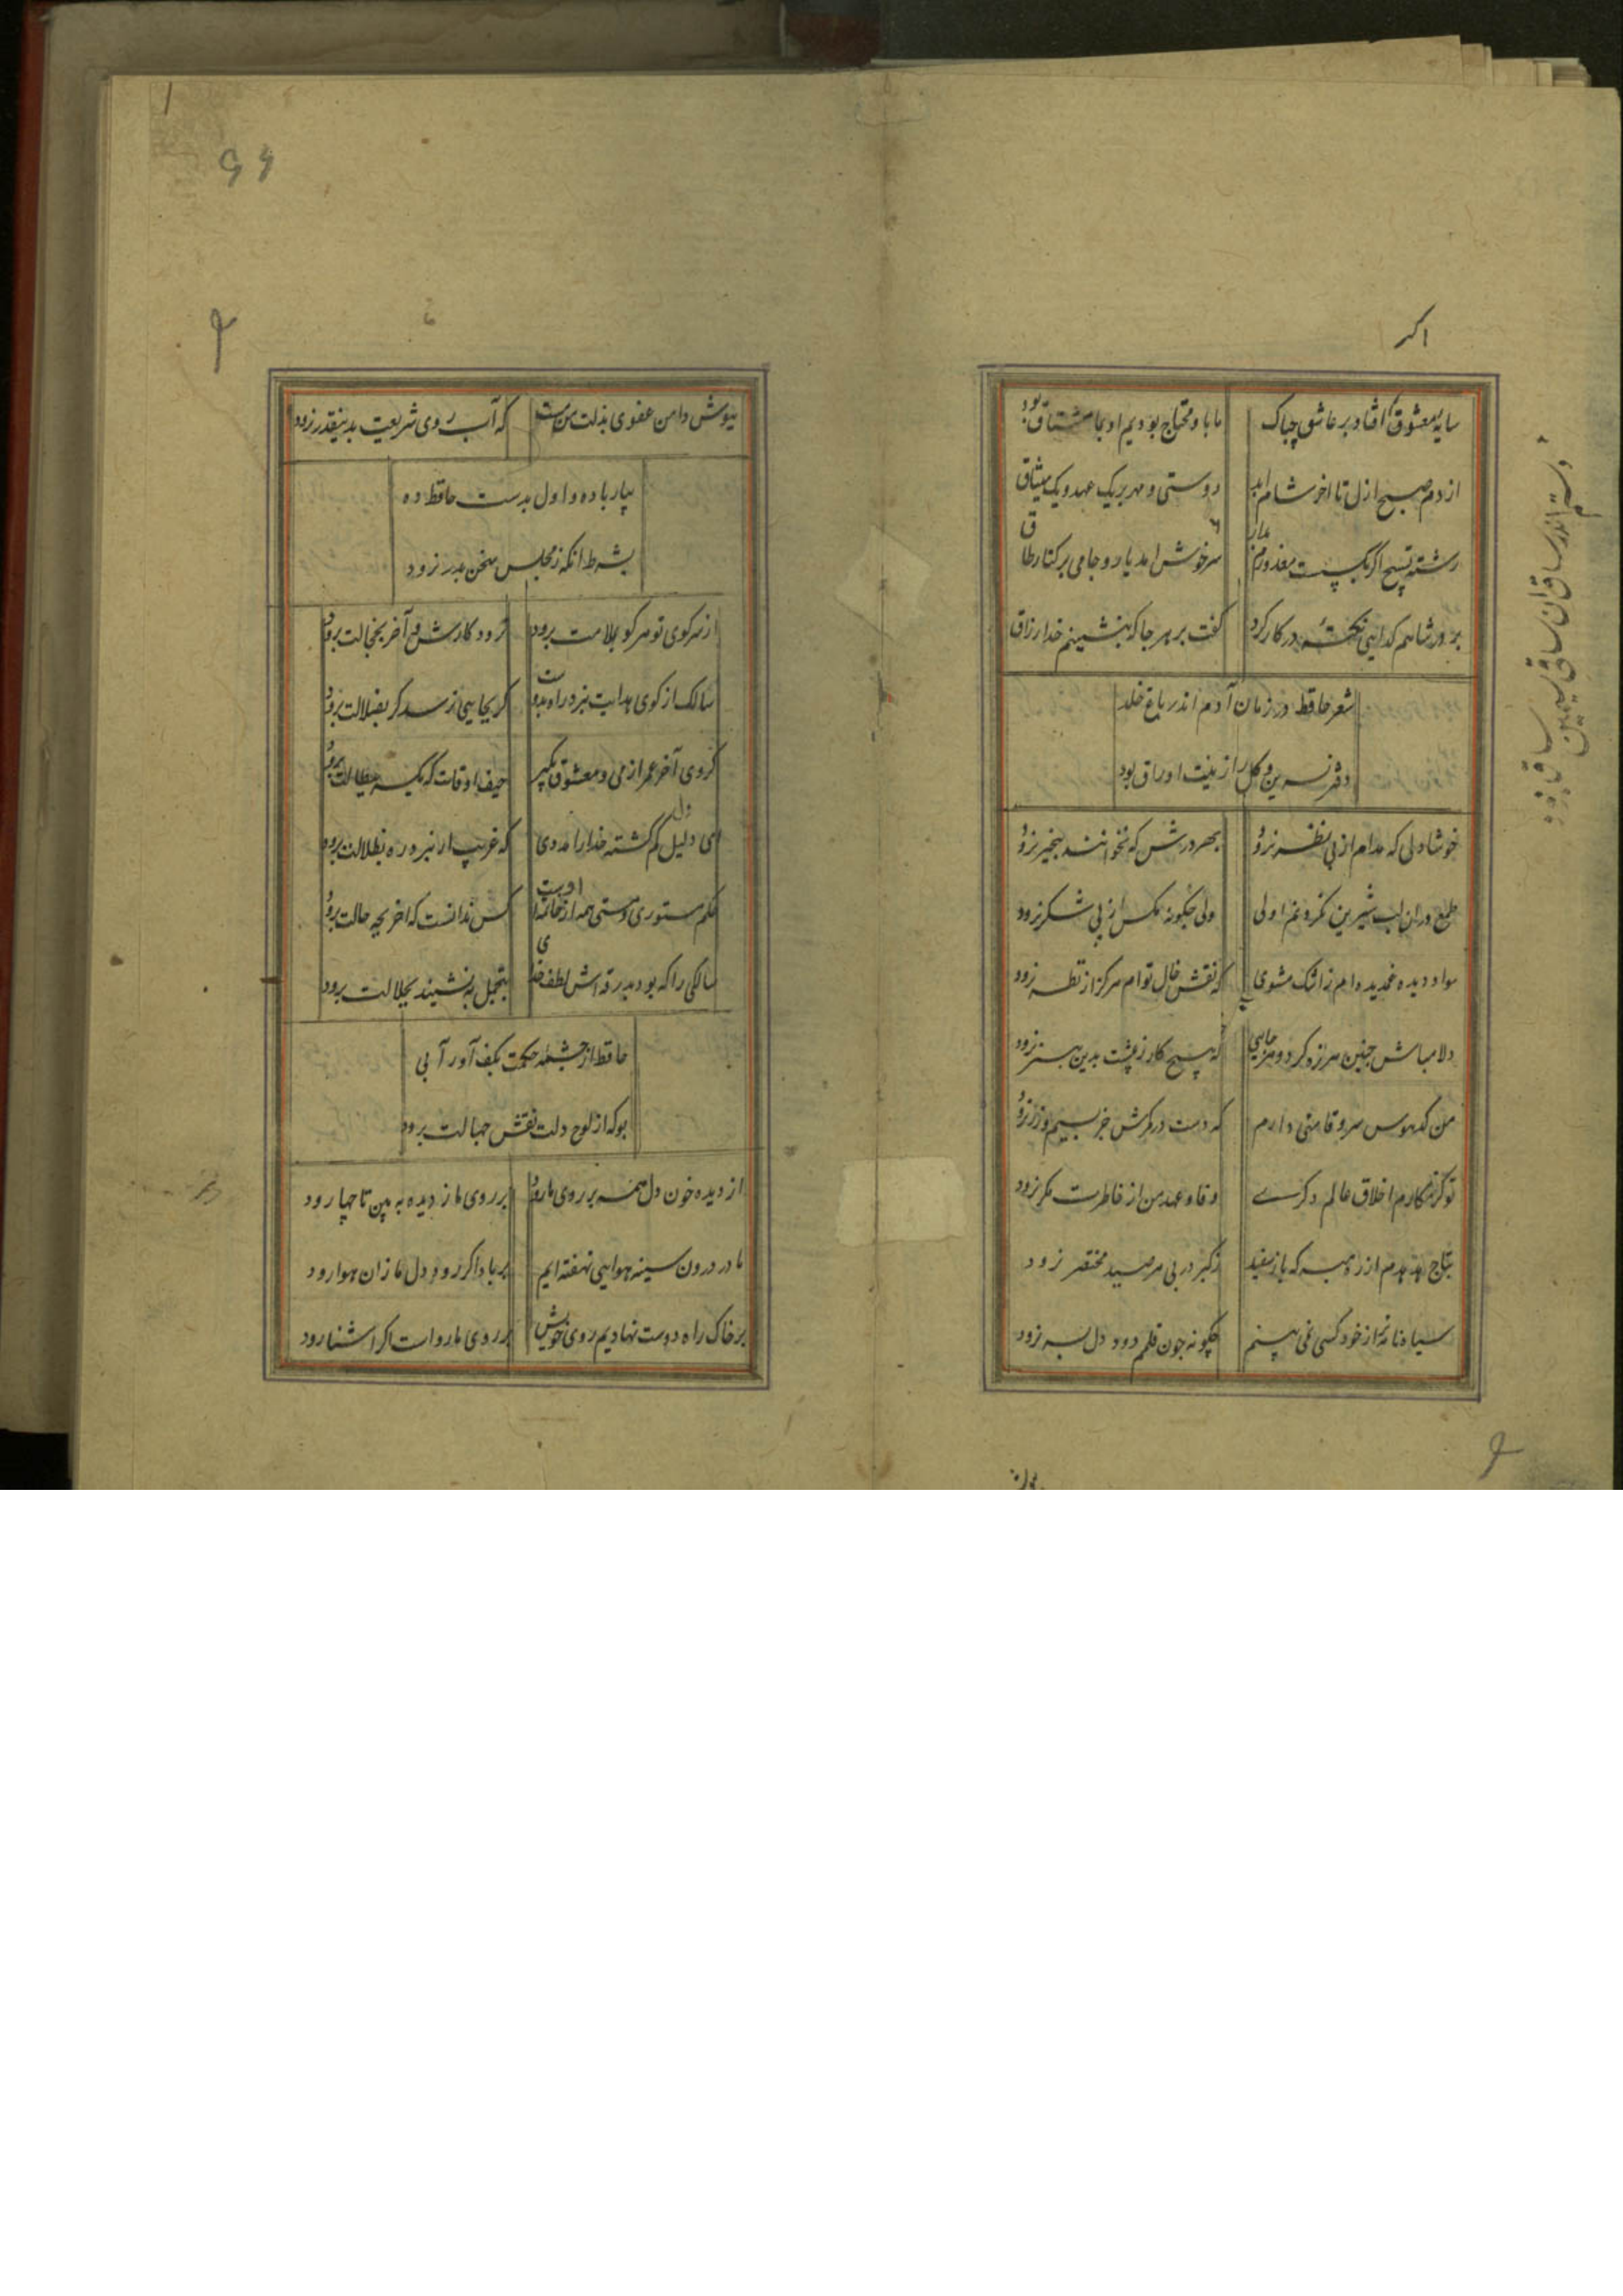 اکر
سایهٔ معشوق اکر افتاد بر عاشق چباک
ما باو محتاج بودیم او بما مشتاق بود
از دم صبح ازل تا اخر شام ابد
دوستی و مهر بریک عهد و یک میثاق
رشتهٔ تسبیح اکر بکسست معذورم بدار
سرخوش امد یار و جامی بر کنار طاق
بر در شاهم کدایی نکتهٔ در کار کرد
کفت بر هر جا که بنشینم خدا رزاق
شعر حافظ در زمان آدم اندر باغ خلد
دفتر نسرین و کل را زینت اوراق بود
خوشا دلی که مدام از پی نظر نرود
بهر درش که نخوانند بیخبر نرود
طمع دران لب شیرین نکردنم اولی
ولی چکونه مکس از پی شکر نرود
سواد دیده غمدیده ام ز اشک مشوی
که نقش خال توام هرکز از نظر نرود
دلا مباش چنین هرزه کرد و هرجایی
که هیچ کار ز پیشت بدین هنر نرود
من که هوس سرو قامتی دارم
که دست در کمرش جز بسیم و زر نرود
تو کز مکارم اخلاق عالم دکری
وفا و عهد من از خاطرت مکر نرود
بتاج هدهدم از ره مبر که باز سفید
ز کبر در پی هر صید مختصر نرود
سیاه نامهٔ از خود کسی نمی بینم
چکونه چون قلم دود دل بسر نرود
بپوش دامن عفوی بذلت من مست
که آب روی شریعت بدینقدر نرود
بیار باده و اول بدست حافظ ده
بشرط انکه ز مجلس سخن بدر نرود
از سر کوی تو هر کو بملامت برود
نرود کارش و آخر بخجالت برود
سالک از کوی هدایت ببرد راه بدوست
کر بجایی نرسد کر بضلالت برود
کروی آخر عمر از می و معشوق بکیر
حیف اوقات که یکسر ببطالت برود
ای دلیل دل کم کشته خدا را مددی
که غریب ار نبرد ره بدلالت برود
حکم مستوری و مستی همه از خاتمت اوست
کس ندانست که اخر بچه حالت برود
سالکی را که بود بدرقه اش لطف خدای
بتجمل بنشیند بجلالت برود
حافظ از چشمهٔ حکمت بکف آور آبی
بوکه از لوح دلت نقش جهالت برود
از دیده خون دل همه بر روی ما رود
بر روی ما ز دیده به بین تا چها رود
ما در درون سینه هوایی نهفته ایم
بر باد اکر رود دل ما زان هوا رود
بر خاک راه دوست نهادیم روی خویش
بر روی ما رواست اکر اشنا رود